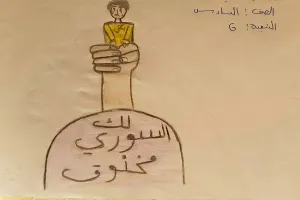 الصف : السادس
الشعبة : G
لك
السوري
مخنوق